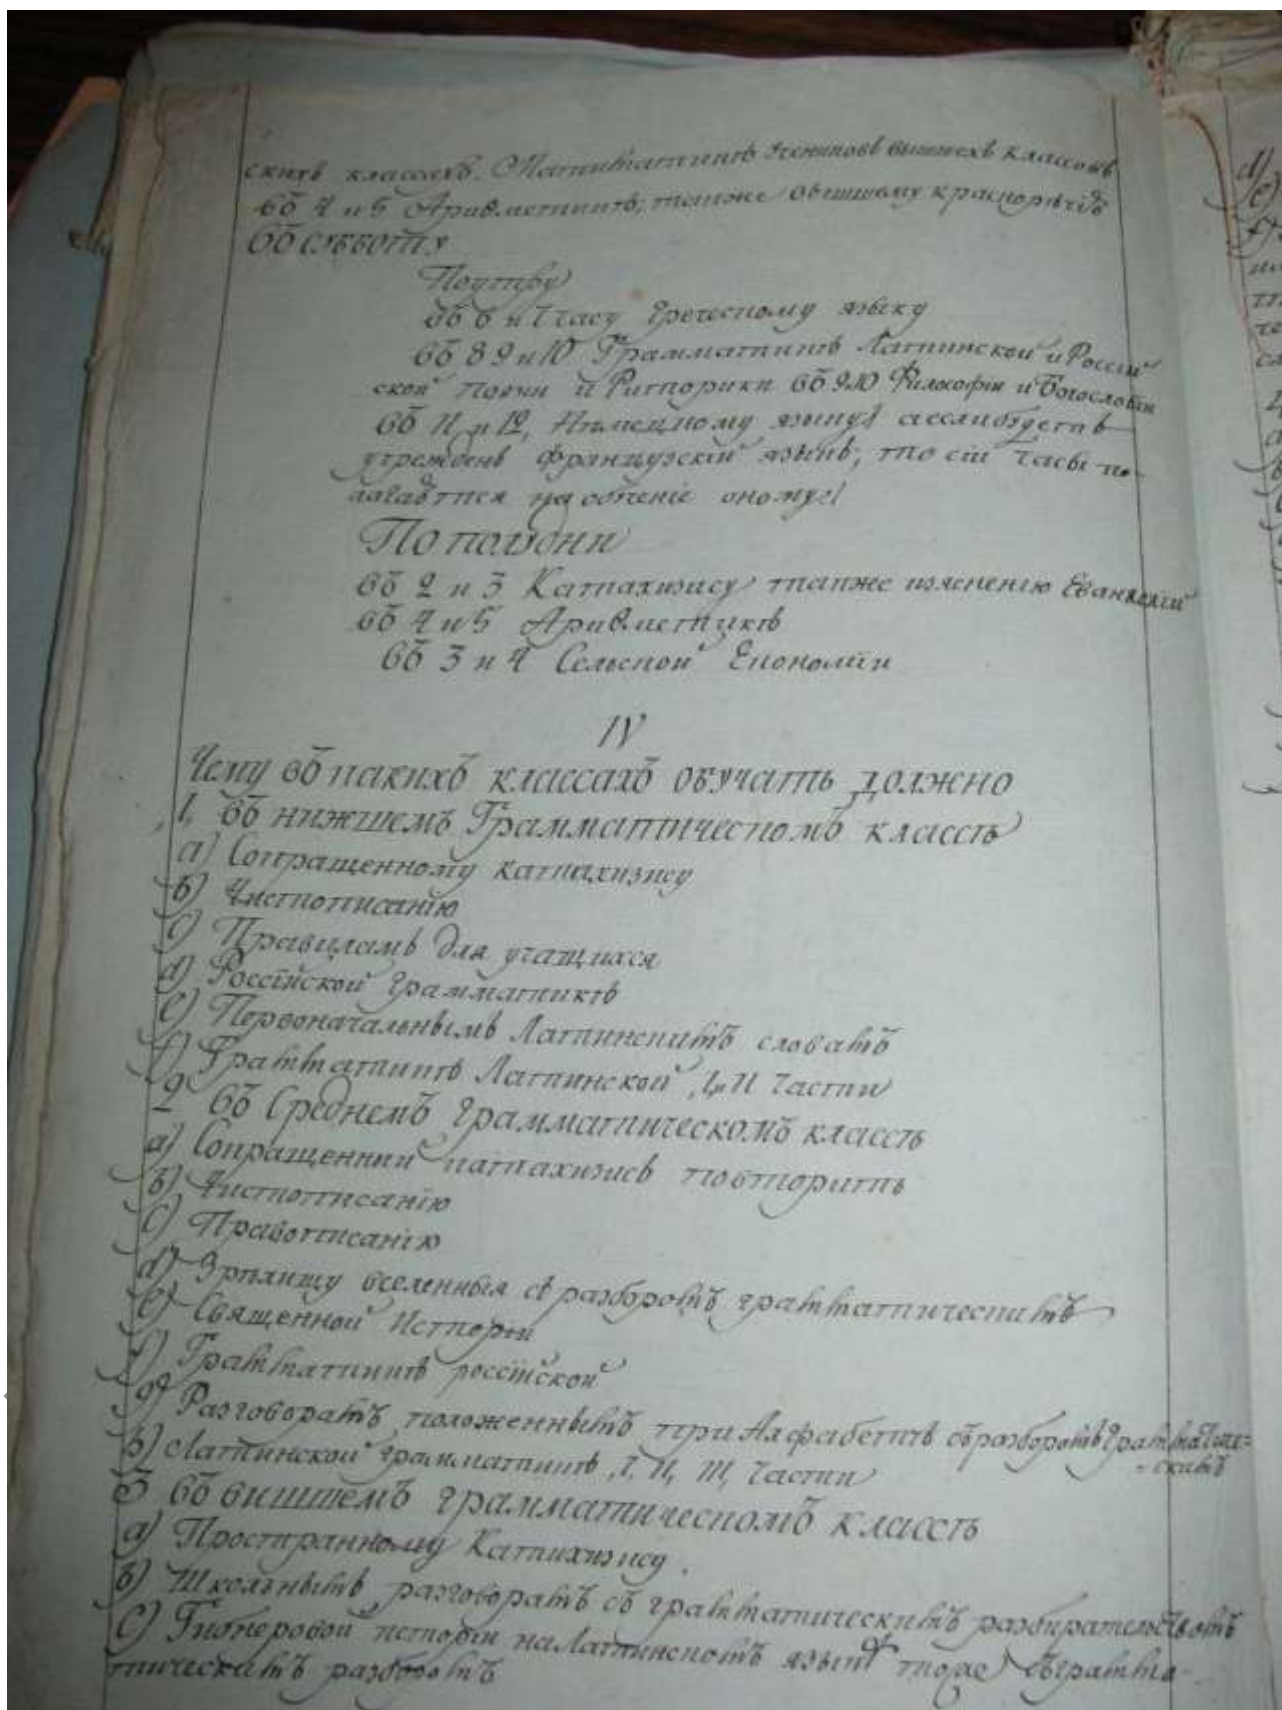 скихъ классахъ. Математикѣ учениковъ вышшехъ классовъ
въ 4 и 5 Ариѳметикѣ; также вышшему краснорѣчію
въ субботу
Поутру
въ 6 и 7 часу Греческому языку
въ 8 9 и 10 Грамматикѣ Латинской и Россій
ской Поэзии и Риторики въ 9 10 Философіи и Богословіи
въ 11 и 12, Немѣцкому языку а если будетъ
учрежденъ французскій языкъ, то сіи часы по-
лагаются на обученіе оному
По полудни
въ 2 и 3 Катахизису также изяснению Евангелій
въ 4 и 5 Ариѳметикѣ
въ 3 и 4 Сельской Економіи
IV
Чему въ какихъ классахъ обучать должно
1, въ нижшемъ Грамматическомъ классѣ
a) Сокращенному катахизису
b) Чистописанію
c) Правиламъ для учащихся
d) Россійской грамматикѣ
e) Первоначальнымъ Латинскимъ словамъ
f) Грамматикѣ Латинской, I, и II части
2 въ Среднемъ грамматическомъ классѣ
a) Сокращенний катахизисъ повторить
b) Чистописанію
c) Правописанію
d) Зрѣлищу вселенныя съ разборомъ грамматическимъ
e) Священной Исторіи
f) Грамматикѣ россійской
g) Разговорамъ положеннымъ при Алфабетѣ съ разборомъ Граматиче=
-скимъ
h) Латинской грамматикѣ, I, II, III, части
3 въ вишшемъ грамматическомъ классѣ
a) Пространному Катихизису.
b) Школьнымъ разговорамъ съ грамматическимъ разбирательствомъ
c) Гибнеровой истории на Латинскомъ языкѣ тоже съ грамма-
тическимъ разборомъ